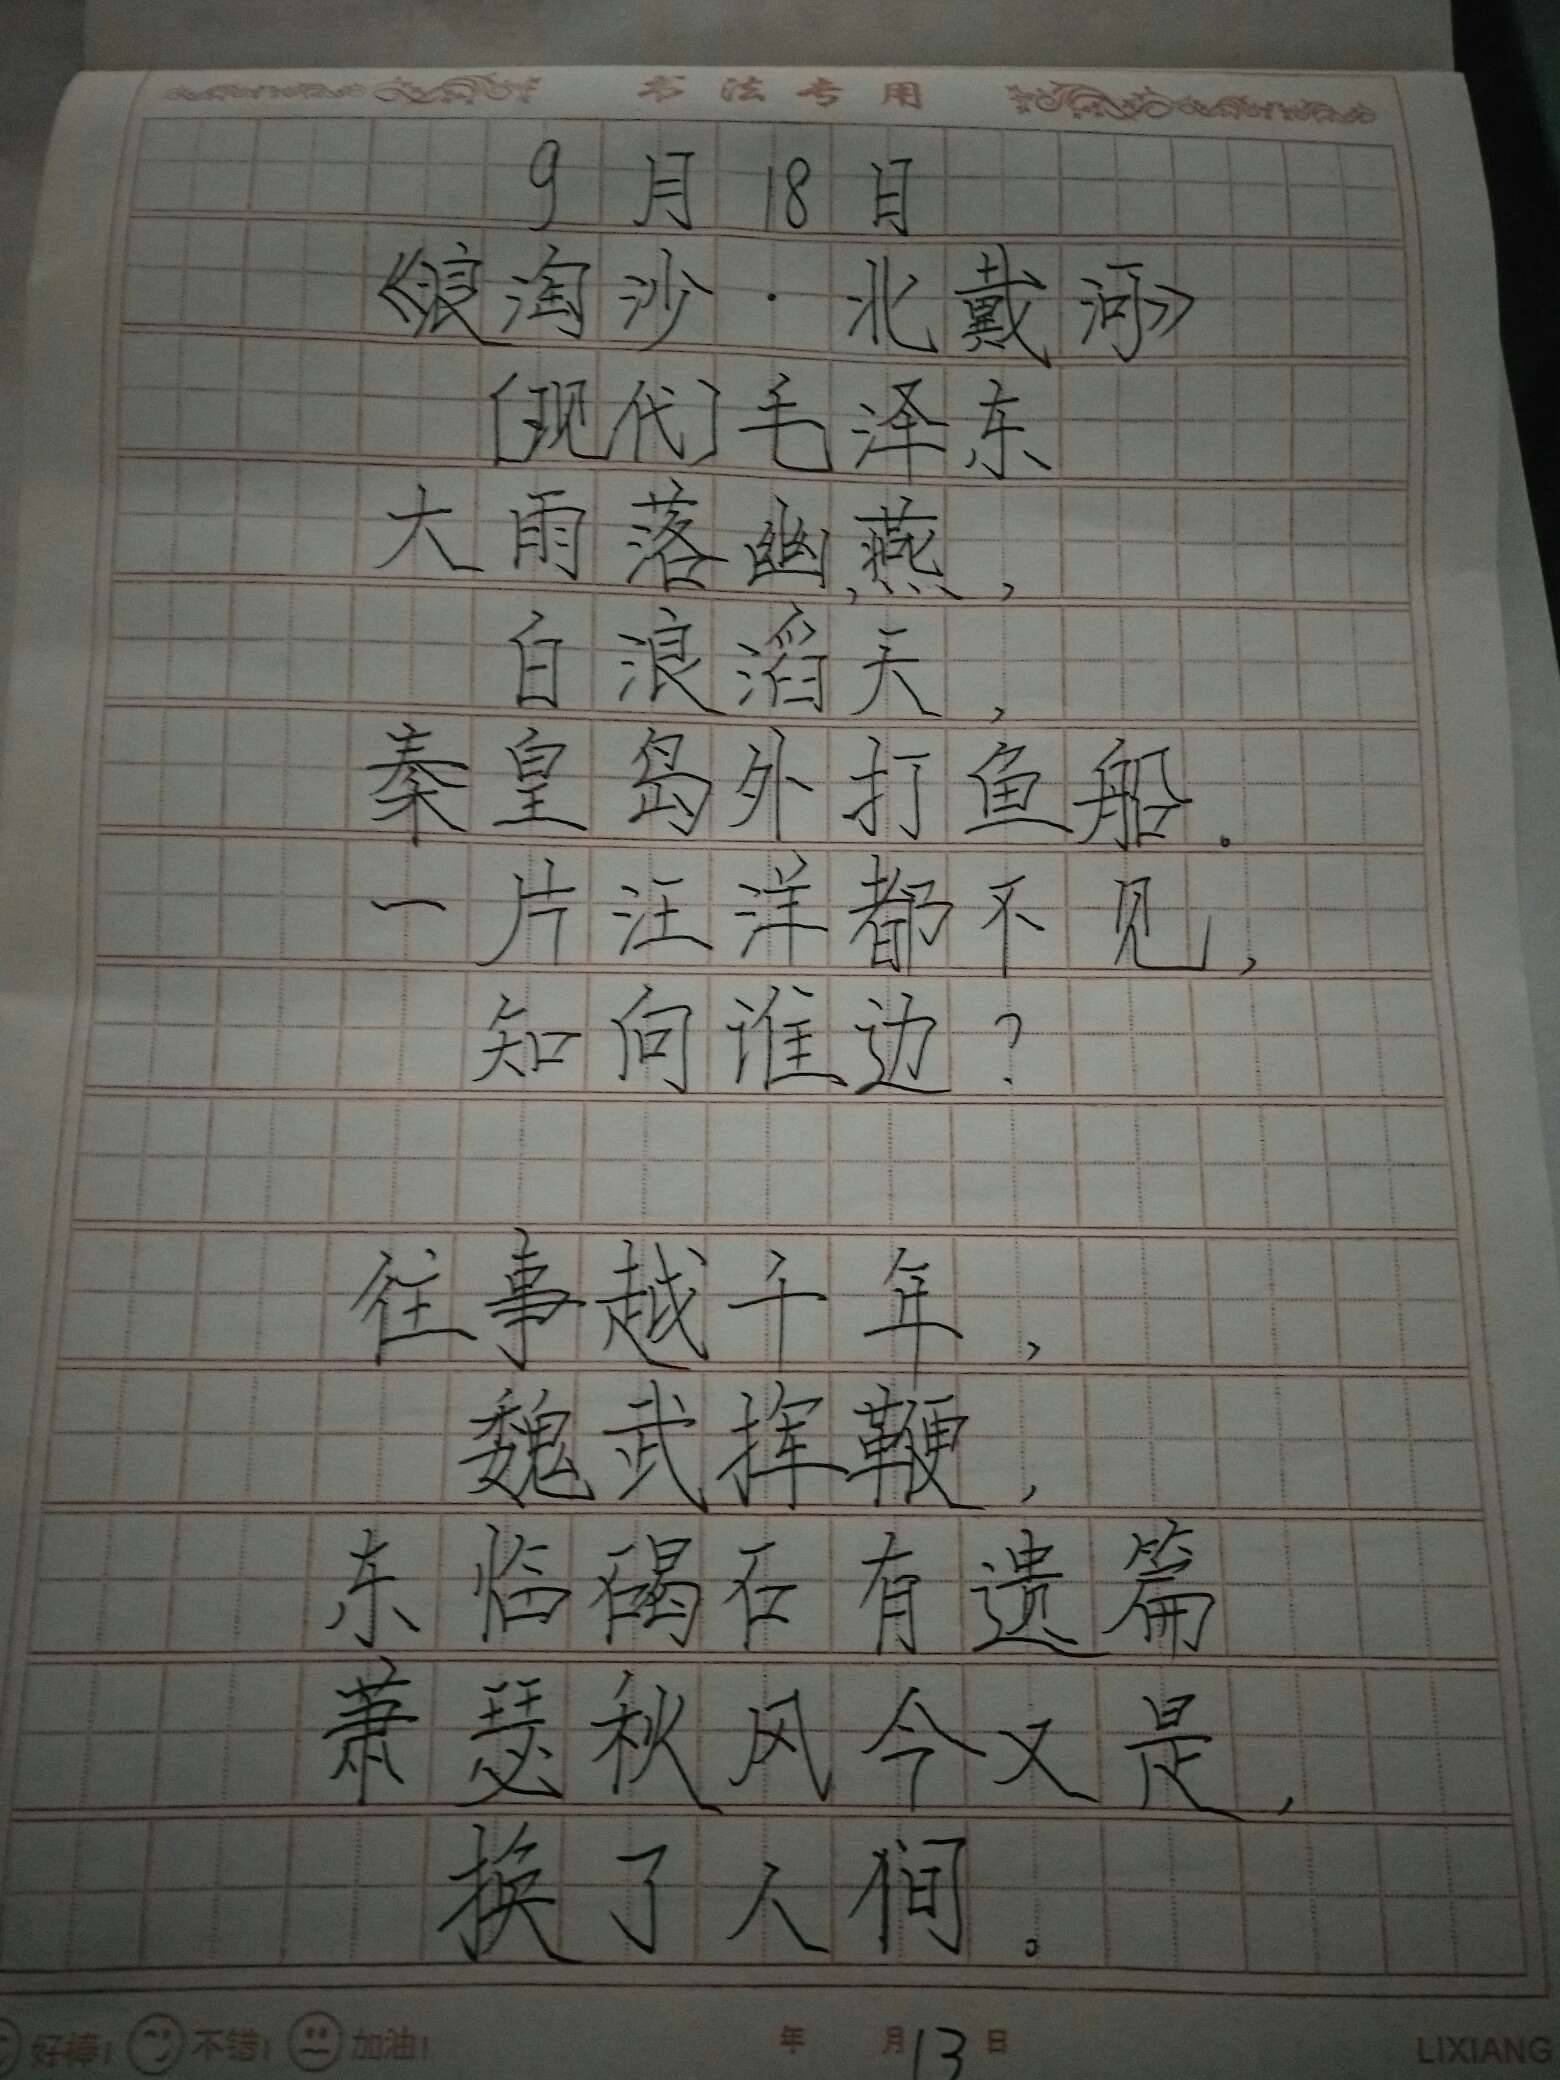 书法专用
9月18日
《浪淘沙·北戴河》
〔现代〕毛泽东
大雨落幽燕，
白浪滔天，
秦皇岛外打鱼船。
一片汪洋都不见，
知向谁边？
往事越千年，
魏武挥鞭，
东临碣石有遗篇
萧瑟秋风今又是，
换了人间。
好棒! 不错! 加油! 年 月13日 LIXIANG